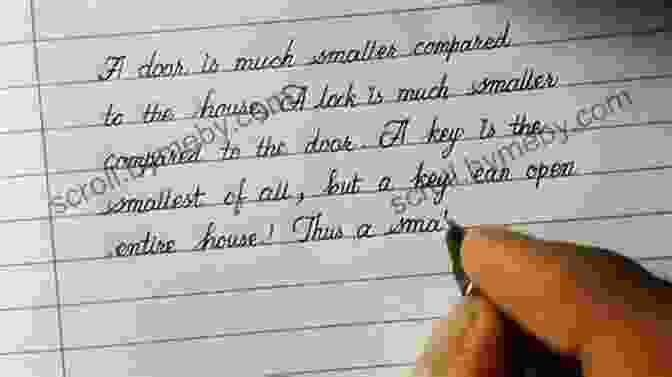 A door is much smaller compared
to the house. A lock is much smaller
compared to the door. A key is the
smallest of all, but a key can open
entire house! Thus a sma
scroll.bymeby.com
scroll.bymeby.com